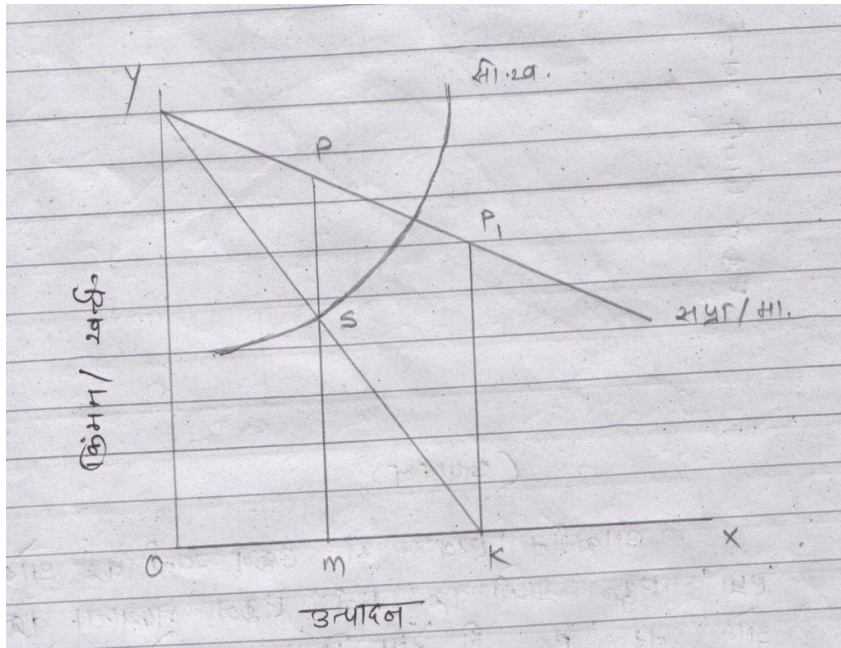 Y
सी.ख.
P
P₁
S
सप्रा/मा.
किंमत/खर्च
O
M
K
X
उत्पादन